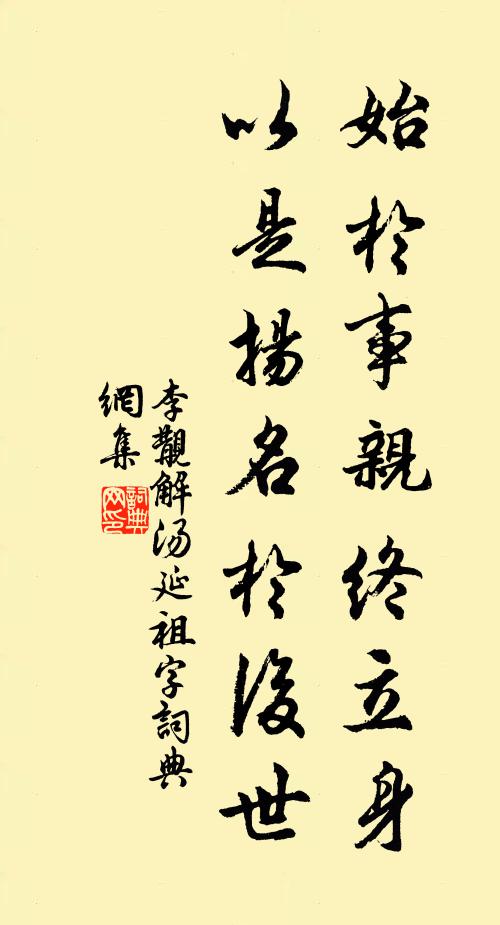 始於事親終立身
以是揚名於後世
李觏解湯延祖字詞典
網集
詞典
网印